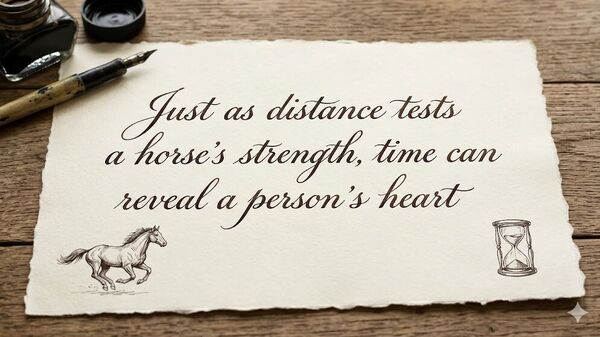 Just as distance tests
a horse's strength, time can
reveal a person's heart